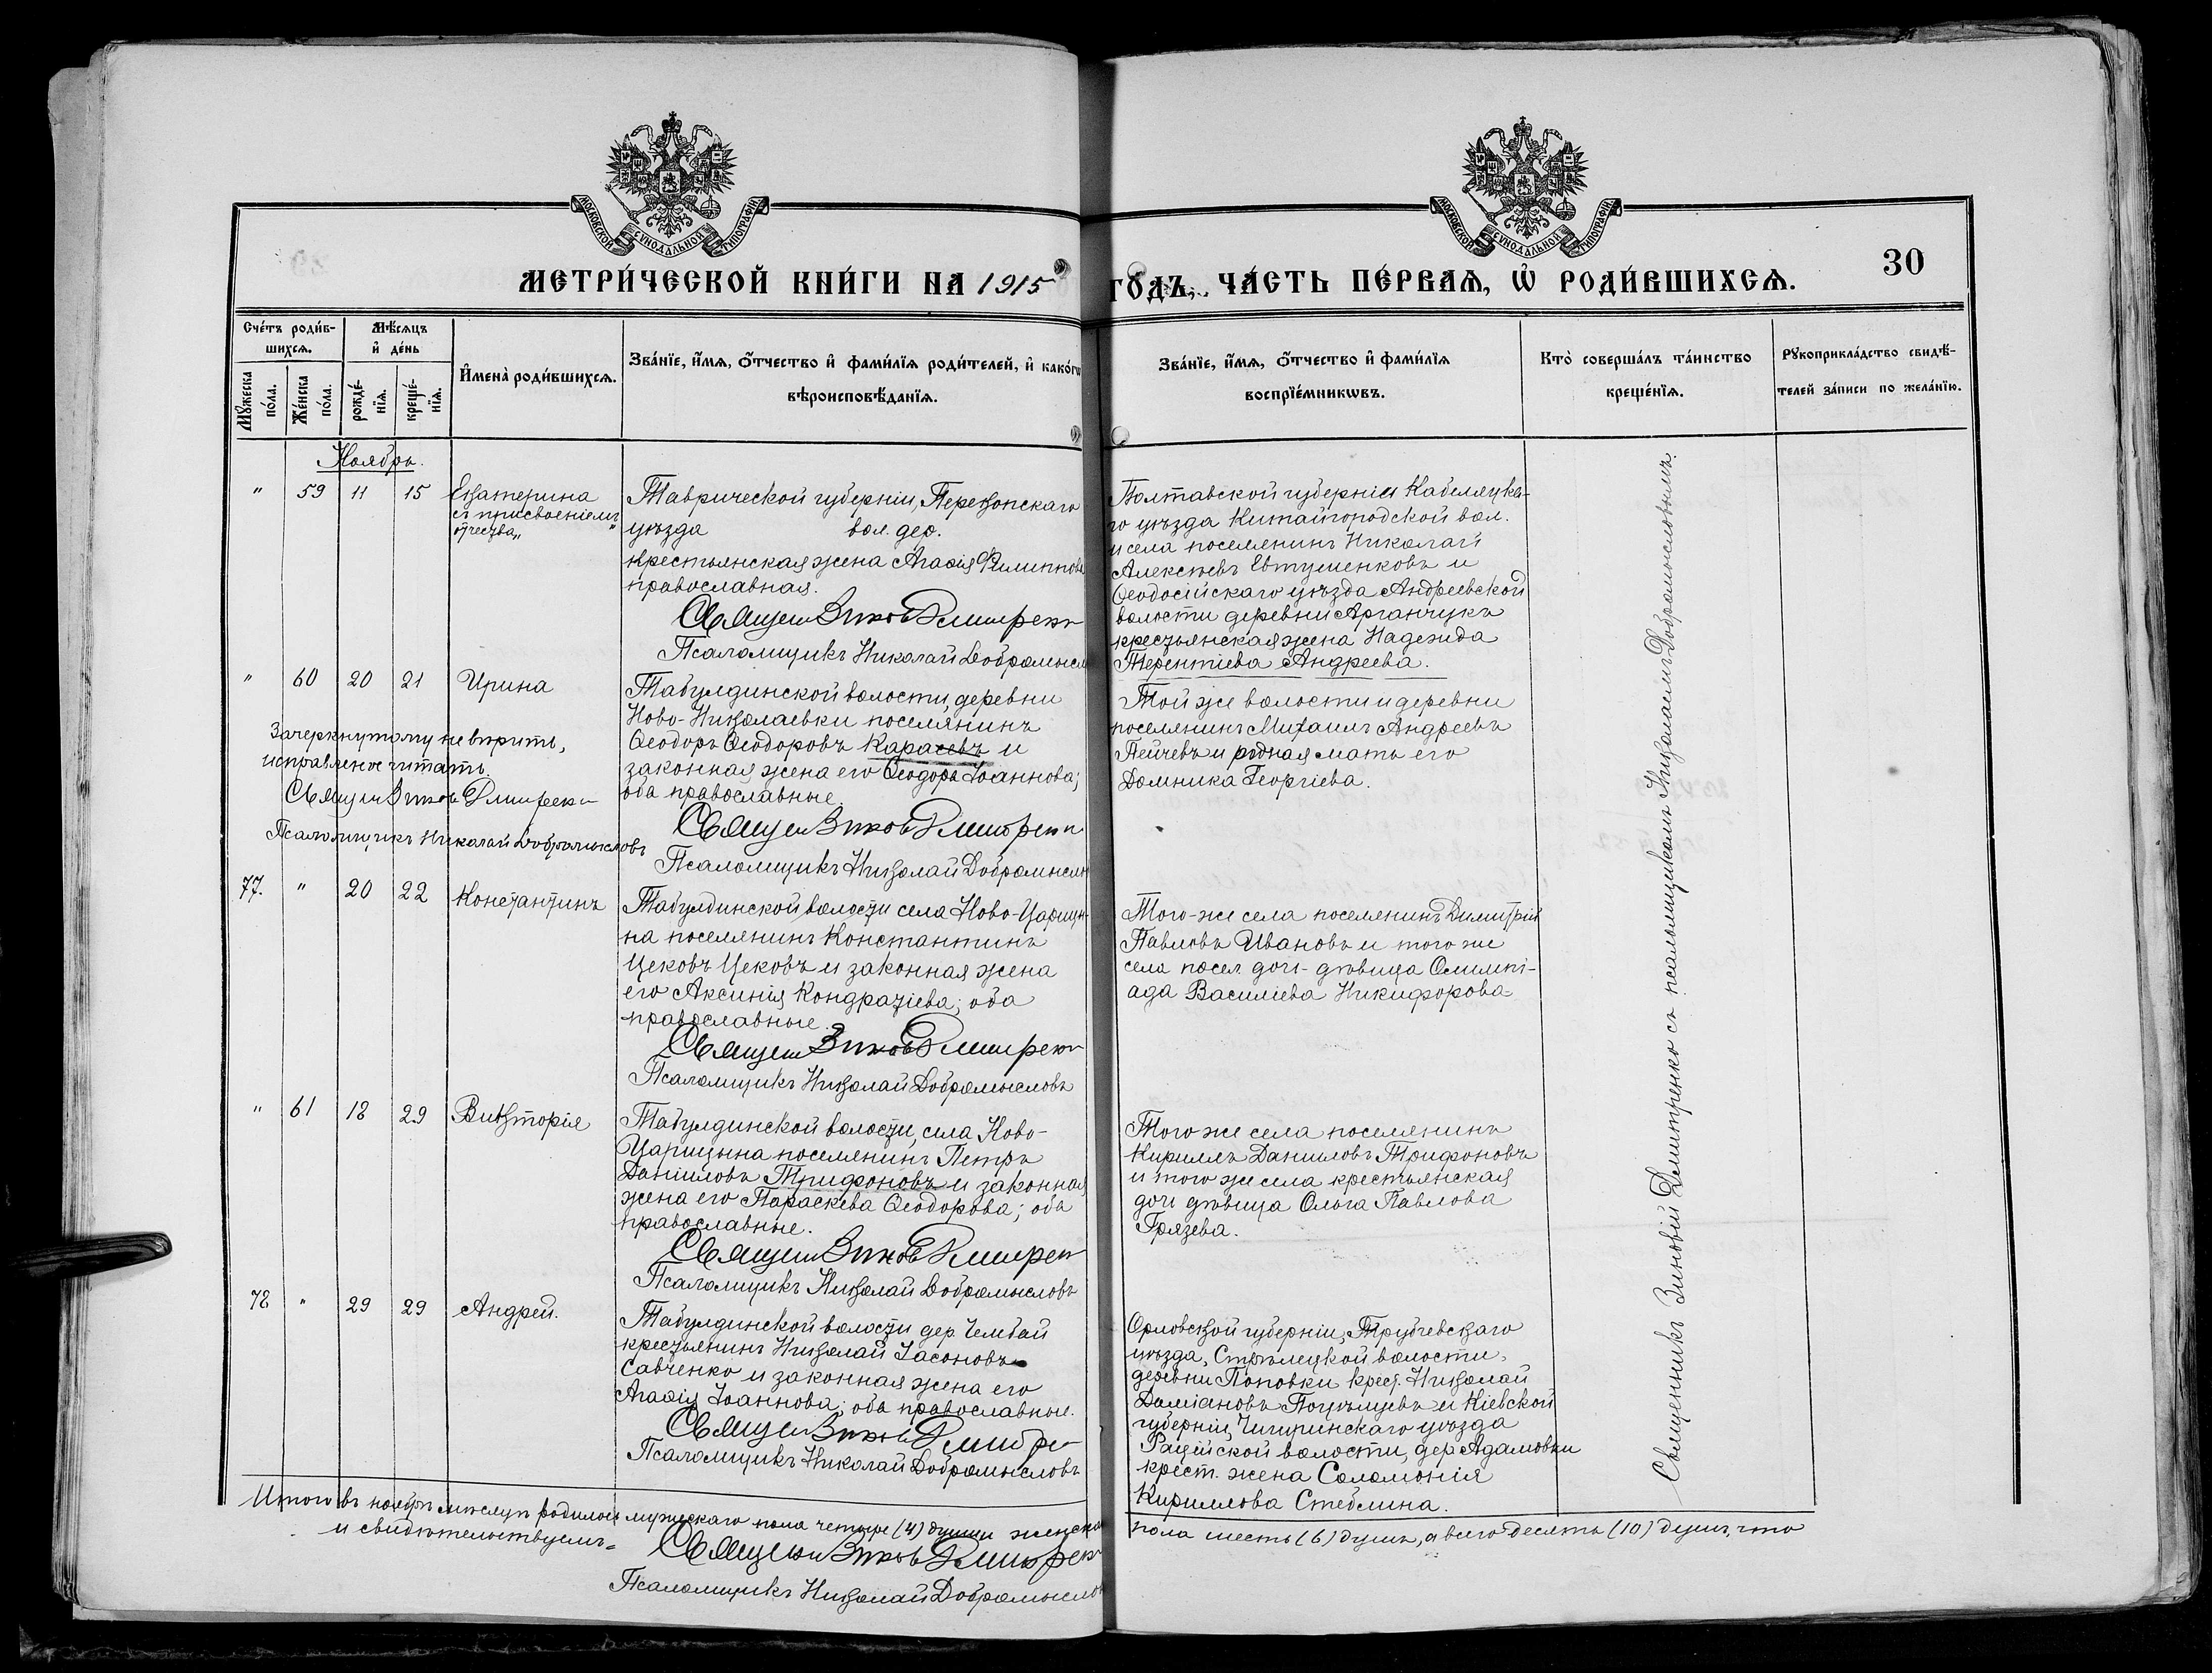 МОСКОВСКОЙ СѴНОДАЛЬНОЙ ТИПОГРАФІИ
МОСКОВСКОЙ СѴНОДАЛЬНОЙ ТИПОГРАФІИ
МЕТРИ́ЧЕСКОЙ КНИ́ГИ НА 1915
ГО́ДЪ, ЧА́СТЬ ПЕ́РВАѦ, Ѡ҆ РОДИ́ВШИХСѦ.
30
Сче́тъ роди́в-
шихсѧ.
Мꙋ́жеска по́ла.
Же́нска по́ла.
Мѣ́сѧцъ
и҆ де́нь
рожде́-
нїѧ.
креще́-
нїѧ.
И҆мена̀ роди́вшихсѧ.
Зва́нїе, и҆́мѧ, ѻ҆́тчество и҆ фами́лїѧ роди́телей, и҆ како́гѡ
вѣроисповѣ́данїѧ.
Зва́нїе, и҆́мѧ, ѻ҆́тчество и҆ фами́лїѧ
воспрїе́мникѡвъ.
Кто̀ соверша́лъ та́инство
креще́нїѧ.
Рꙋкоприкла́дство свидѣ́-
телей за́писи по жела́нїю.
Ноябрь.
" 59 11 15 Екатерина
съ присвоеніемъ
отчества "
Таврической губерніи, Перекопскаго
уѣзда вол. дер.
крестьянская жена Агафія Филиппова
православная.
Священникъ Дмитренко
Псаломщикъ Николай Добромысл
Полтавской губерніи Кабеляцка-
го уѣзда Китайгородской вол.
и села поселянинъ Николай
Алексѣевъ Евтушенковъ и
Ѳеодосійскаго уѣзда Андреевской
волости деревни Арганчукъ
крестьянская жена Надежда
Терентіева Андреева.
" 60 20 21 Ирина
Табулдинской волости, деревни
Ново-Николаевки поселянинъ
Ѳеодоръ Ѳеодоровъ Карасевъ и
законная жена его Ѳеодора Іоаннова;
оба православные
Священникъ Дмитренко
Псаломщикъ Николай Добромысл
Зачеркнутому не вѣрить,
исправленное читать.
Священникъ Дмитренко
Псаломщикъ Николай Добромысловъ
Той же волости и деревни
поселянинъ Михаилъ Андреевъ
Пейчевъ и родная мать его
Домника Георгіева.
77. " 20 22 Константинъ
Табулдинской волости села Ново-Царицы-
на поселянинъ Константинъ
Цековъ Цековъ и законная жена
его Аксинія Кондратіева; оба
православные.
Священникъ Дмитренко
Псаломщикъ Николай Добромысловъ
Того-же села поселянинъ Димитрій
Павловъ Ивановъ и того же
села посел. дочь-дѣвица Олимпі-
ада Василіева Никифорова
" 61 18 29 Викторія
Табулдинской волости, села Ново-
Царицына поселянинъ Петръ
Даніиловъ Трифоновъ и законная
жена его Параскева Ѳеодорова; оба
православные.
Священникъ Дмитренко
Псаломщикъ Николай Добромысловъ
Того же села поселянинъ
Кириллъ Даниловъ Трифоновъ
и того же села крестьянская
дочь дѣвица Ольга Павлова
Грязева.
78 " 29 29 Андрей.
Табулдинской волости дер. Чембай
крестьянинъ Николай Іасоновъ
Савченко и законная жена его
Агафія Іоаннова; оба православные.
Священникъ Дмитренко
Псаломщикъ Николай Добромысловъ
Орловской губерніи, Трубчевскаго
уѣзда, Стрѣлецкой волости,
деревни Поповки крест. Николай
Даміановъ и Кіевской
губерніи, Чигиринскаго уѣзда
Рацейской волости, дер. Адамовки
крест. жена Соломонія
Кириллова Стеблина.
Священникъ Зиновій Дмитренко съ псаломщикомъ Николаемъ Добромысловымъ.
Итого въ ноябрѣ мѣсяцѣ родилось мужескаго пола четыре (4) души женска
пола шесть (6) душъ, а всего десять (10) душъ, что
и свидѣтельствуемъ
Священникъ Дмитренко
Псаломщикъ Николай Добромысло